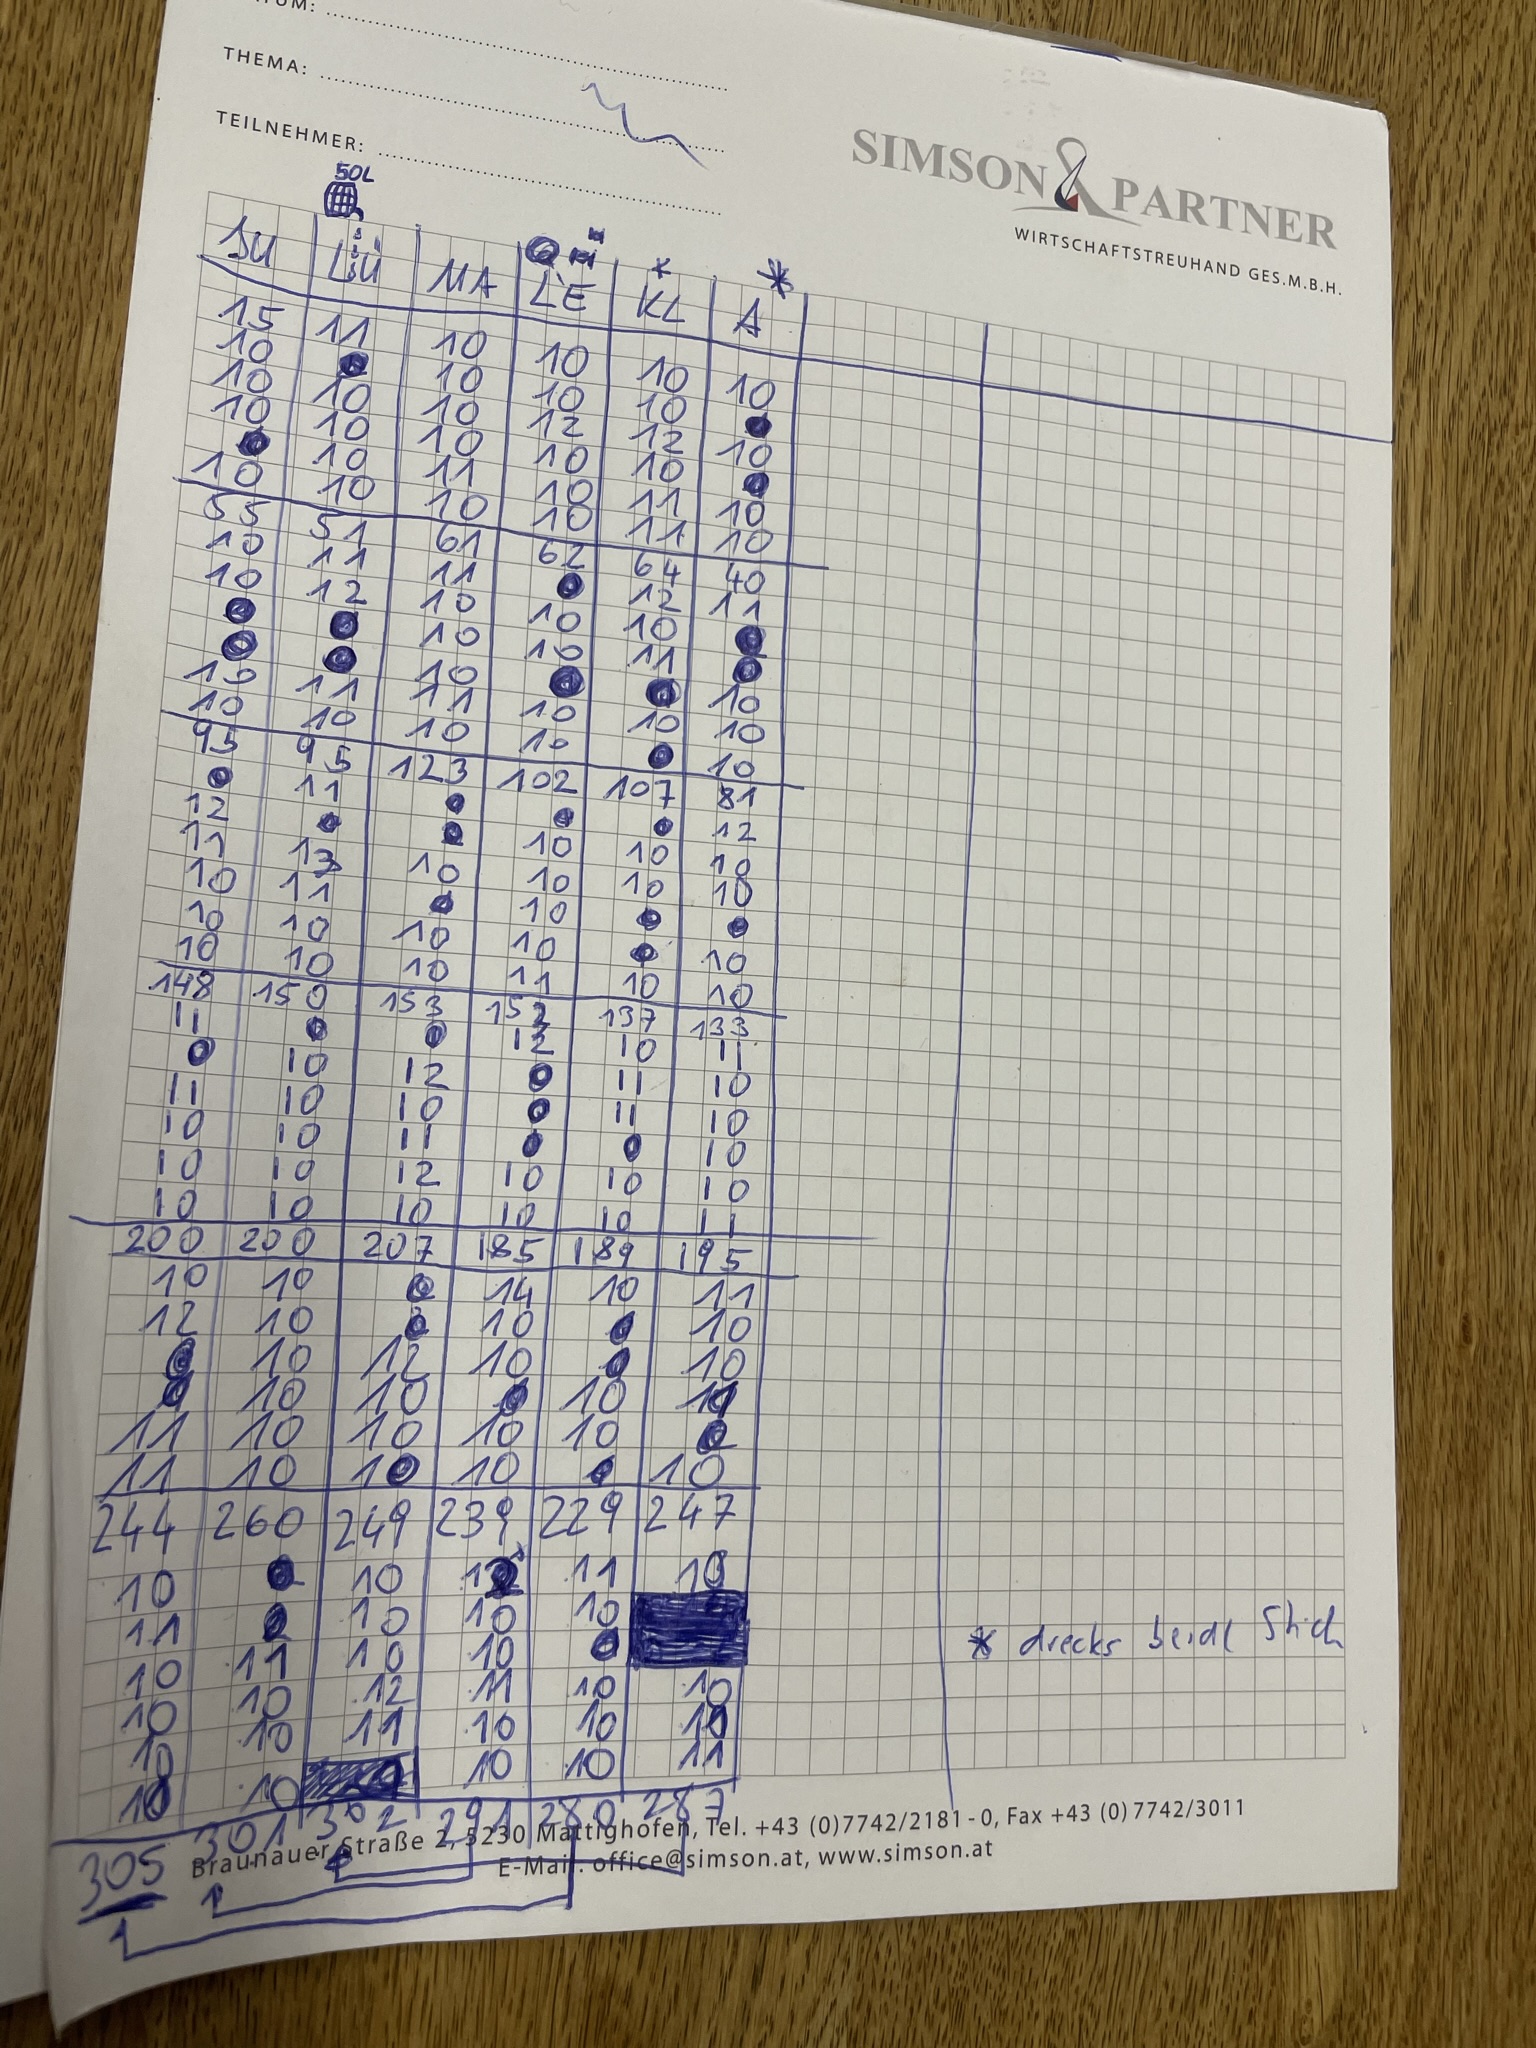 THEMA:
TEILNEHMER:
SIMSON & PARTNER
WIRTSCHAFTSTREUHAND GES.M.B.H.
50L
LÜ MA LE KL A
15 11 10 10 10 10
10 10 10 10
10 10 10 12 12 10
10 10 10 10 10
10 11 10 11 10
10 10 10 10 11 10
55 51 61 62 64 40
10 11 11 12 11
10 12 10 10 10
10 10 11
10 11 10 10
10 11 11 10 10 10
10 10 10 10
95 95 123 102 107 81
11 12
12 10 10 10
11 13 10 10 10 10
10 11 10
10 10 10 10 10
10 10 10 11 10 10
148 150 153 152 137 133
11 12 10 11
10 12 11 10
11 10 10 11 10
10 10 11 10
10 10 12 10 10 10
10 10 10 10 10 11
200 200 207 185 189 195
10 10 14 10 11
12 10 10 10
10 12 10 10
10 10 10
11 10 10 10 10
11 10 10 10 10
244 260 249 239 229 247
10 10 11 10
11 10 10 10
10 11 10 10
10 10 12 11 10 10
10 10 11 10 10
10 10 10 10 11
305 301 302 291 280 287
Braunauer Straße 2, 5230 Mattighofen, Tel. +43 (0)7742/2181-0, Fax +43 (0)7742/3011
E-Mail: office@simson.at, www.simson.at
* drecks beidl Stich